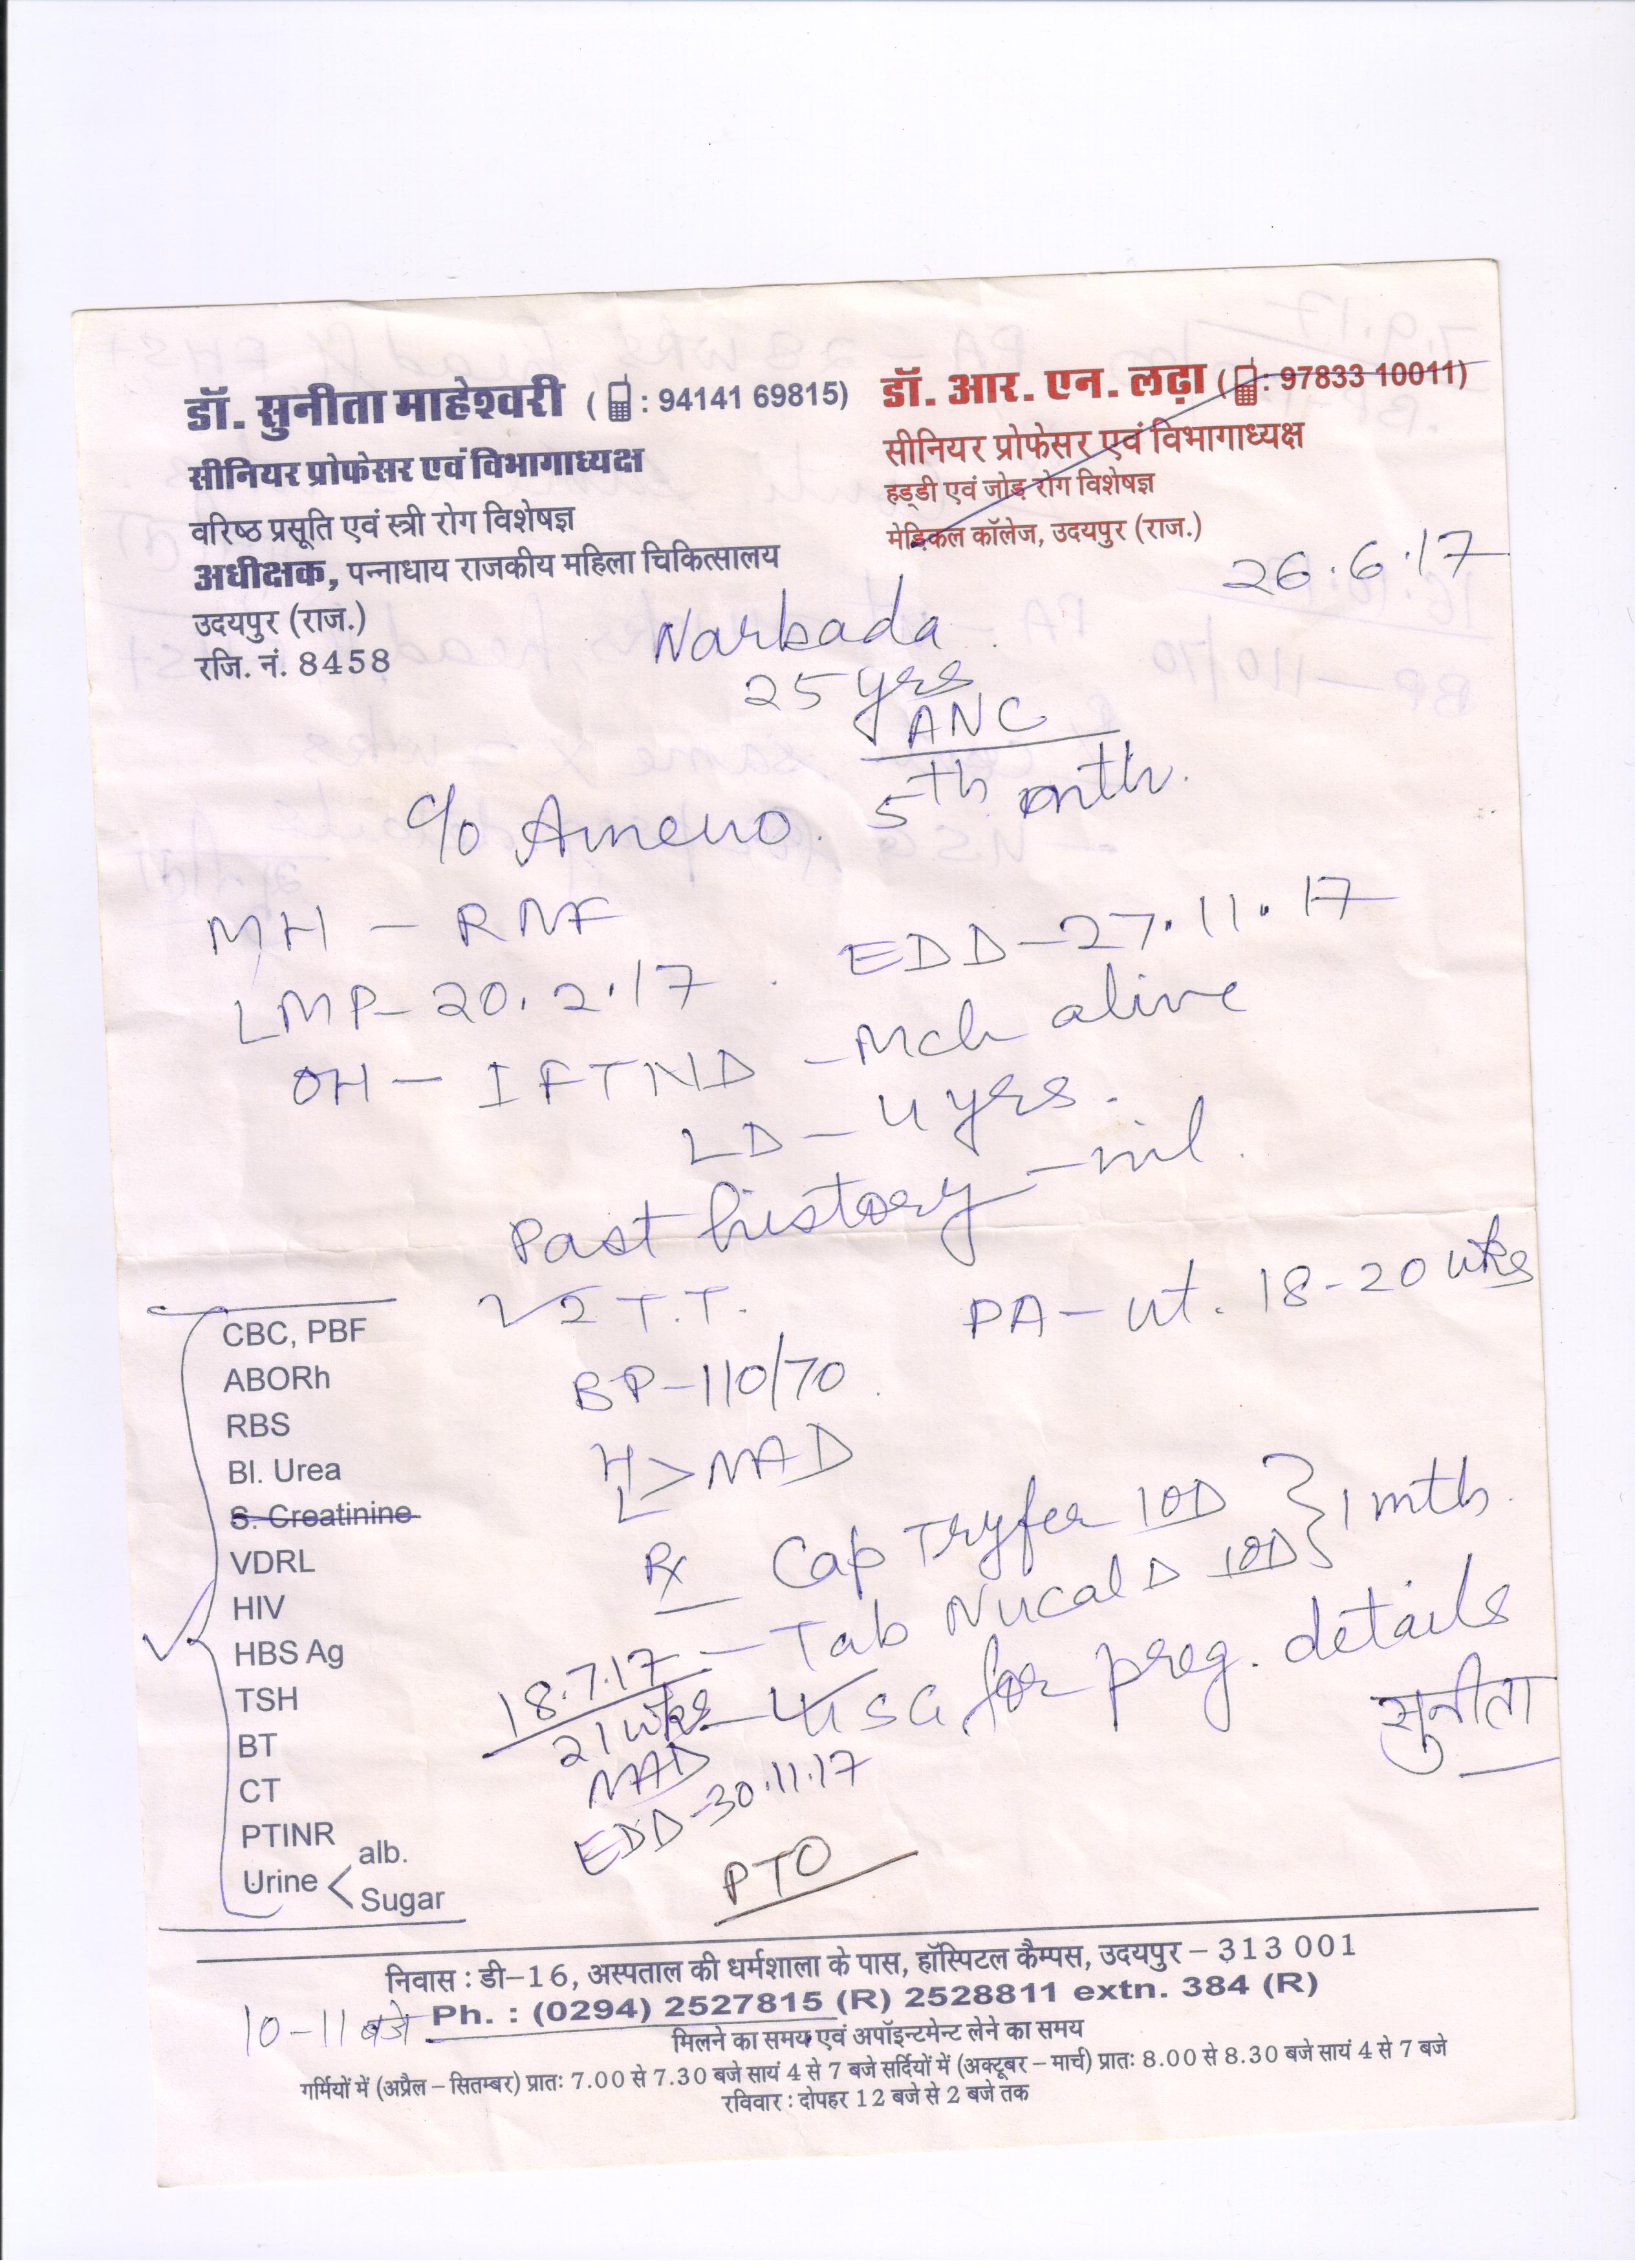 डॉ. सुनीता माहेश्वरी ( : 94141 69815)
सीनियर प्रोफेसर एवं विभागाध्यक्ष
वरिष्ठ प्रसूति एवं स्त्री रोग विशेषज्ञ
अधीक्षक, पन्नाधाय राजकीय महिला चिकित्सालय
उदयपुर (राज.)
रजि. नं. 8458
डॉ. आर. एन. लढ़ा ( : 97833 10011)
सीनियर प्रोफेसर एवं विभागाध्यक्ष
हड्डी एवं जोड़ रोग विशेषज्ञ
मेडिकल कॉलेज, उदयपुर (राज.)
26.6.17
Narbada
25 yrs
ANC
c/o Ameno. 5th mth.
MH - RNF
LMP - 20.2.17 . EDD - 27.11.17
OH - IFTND - Mch alive
LD - 4 yrs.
Past history - nil.
2 T.T. PA - ut. 18-20 wks
BP - 110/70
H
L > NAD
Rx Cap Tryfer 1OD } 1 mth.
- Tab Nucal D 1OD
- USG for preg. details
सुनीता
18.7.17
21 wks
NAD
EDD - 30.11.17
PTO
CBC, PBF
ABORh
RBS
Bl. Urea
S. Creatinine
VDRL
HIV
HBS Ag
TSH
BT
CT
PTINR
Urine < alb.
Sugar
निवास : डी-16, अस्पताल की धर्मशाला के पास, हॉस्पिटल कैम्पस, उदयपुर - 313 001
10-11 बजे Ph. : (0294) 2527815 (R) 2528811 extn. 384 (R)
मिलने का समय एवं अपॉइन्टमेन्ट लेने का समय
गर्मियों में (अप्रैल - सितम्बर) प्रातः 7.00 से 7.30 बजे सायं 4 से 7 बजे सर्दियों में (अक्टूबर - मार्च) प्रातः 8.00 से 8.30 बजे सायं 4 से 7 बजे
रविवार : दोपहर 12 बजे से 2 बजे तक